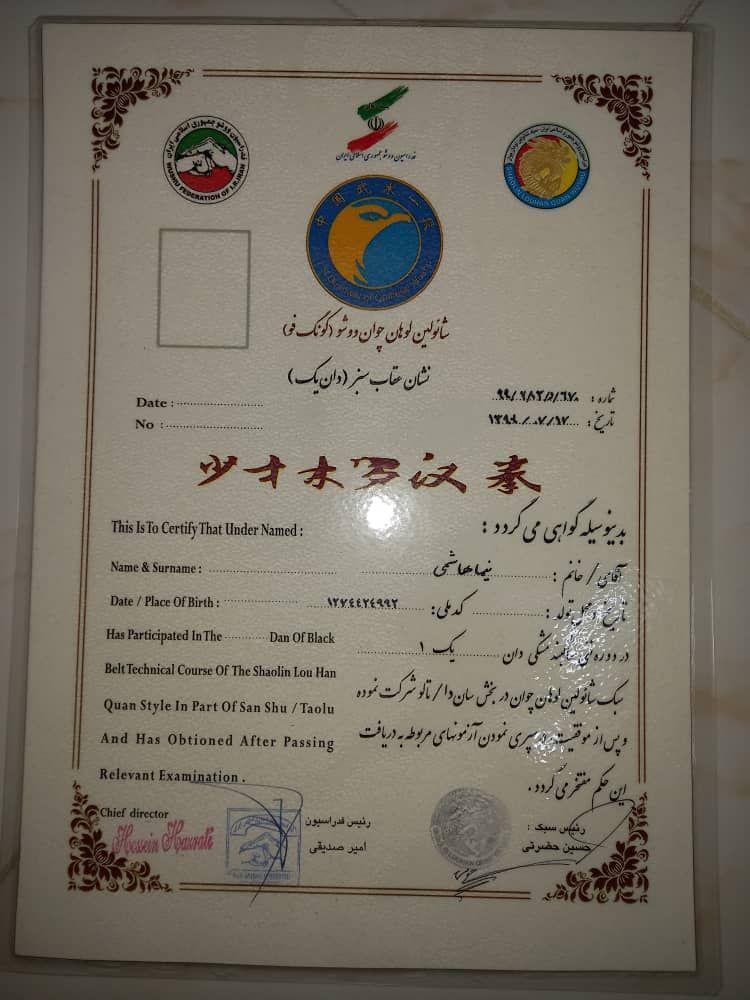 فدراسیون ووشو جمهوری اسلامی ایران
WUSHU FEDERATION OF I.R.IRAN
فدراسیون ووشو جمهوری اسلامی ایران
SHAOLIN LOUHAN QUAN WUSHU
中国武术一段
1'st Duanwei of Chinese Wushu
شائولین لوهان چوان ووشو (کونگ فو)
نشان عقاب سبز (دان یک)
Date :
شماره :
No :
تاریخ : ۱۳۹۹/۰۷/۱۷
少林罗汉拳
This Is To Certify That Under Named :
بدینوسیله گواهی می گردد :
Name & Surname :
آقای / خانم : نیما هاشمی
Date / Place Of Birth :
تاریخ و محل تولد : کد ملی : ۱۲۷۴۴۲۴۹۹۲
Has Participated In The Dan Of Black
در دوره فنی کمربند مشکی دان یک ۱
Belt Technical Course Of The Shaolin Lou Han
سبک شائولین لوهان چوان در بخش سان دا / تالو شرکت نموده
Quan Style In Part Of San Shu / Taolu
و پس از موفقیت در سپری نمودن آزمونهای مربوطه به دریافت
And Has Obtioned After Passing
این حکم مفتخر می گردد.
Relevant Examination .
Chief director
Hossein Hazrati
رئیس فدراسیون
امیر صدیقی
رئیس سبک :
حسین حضرتی